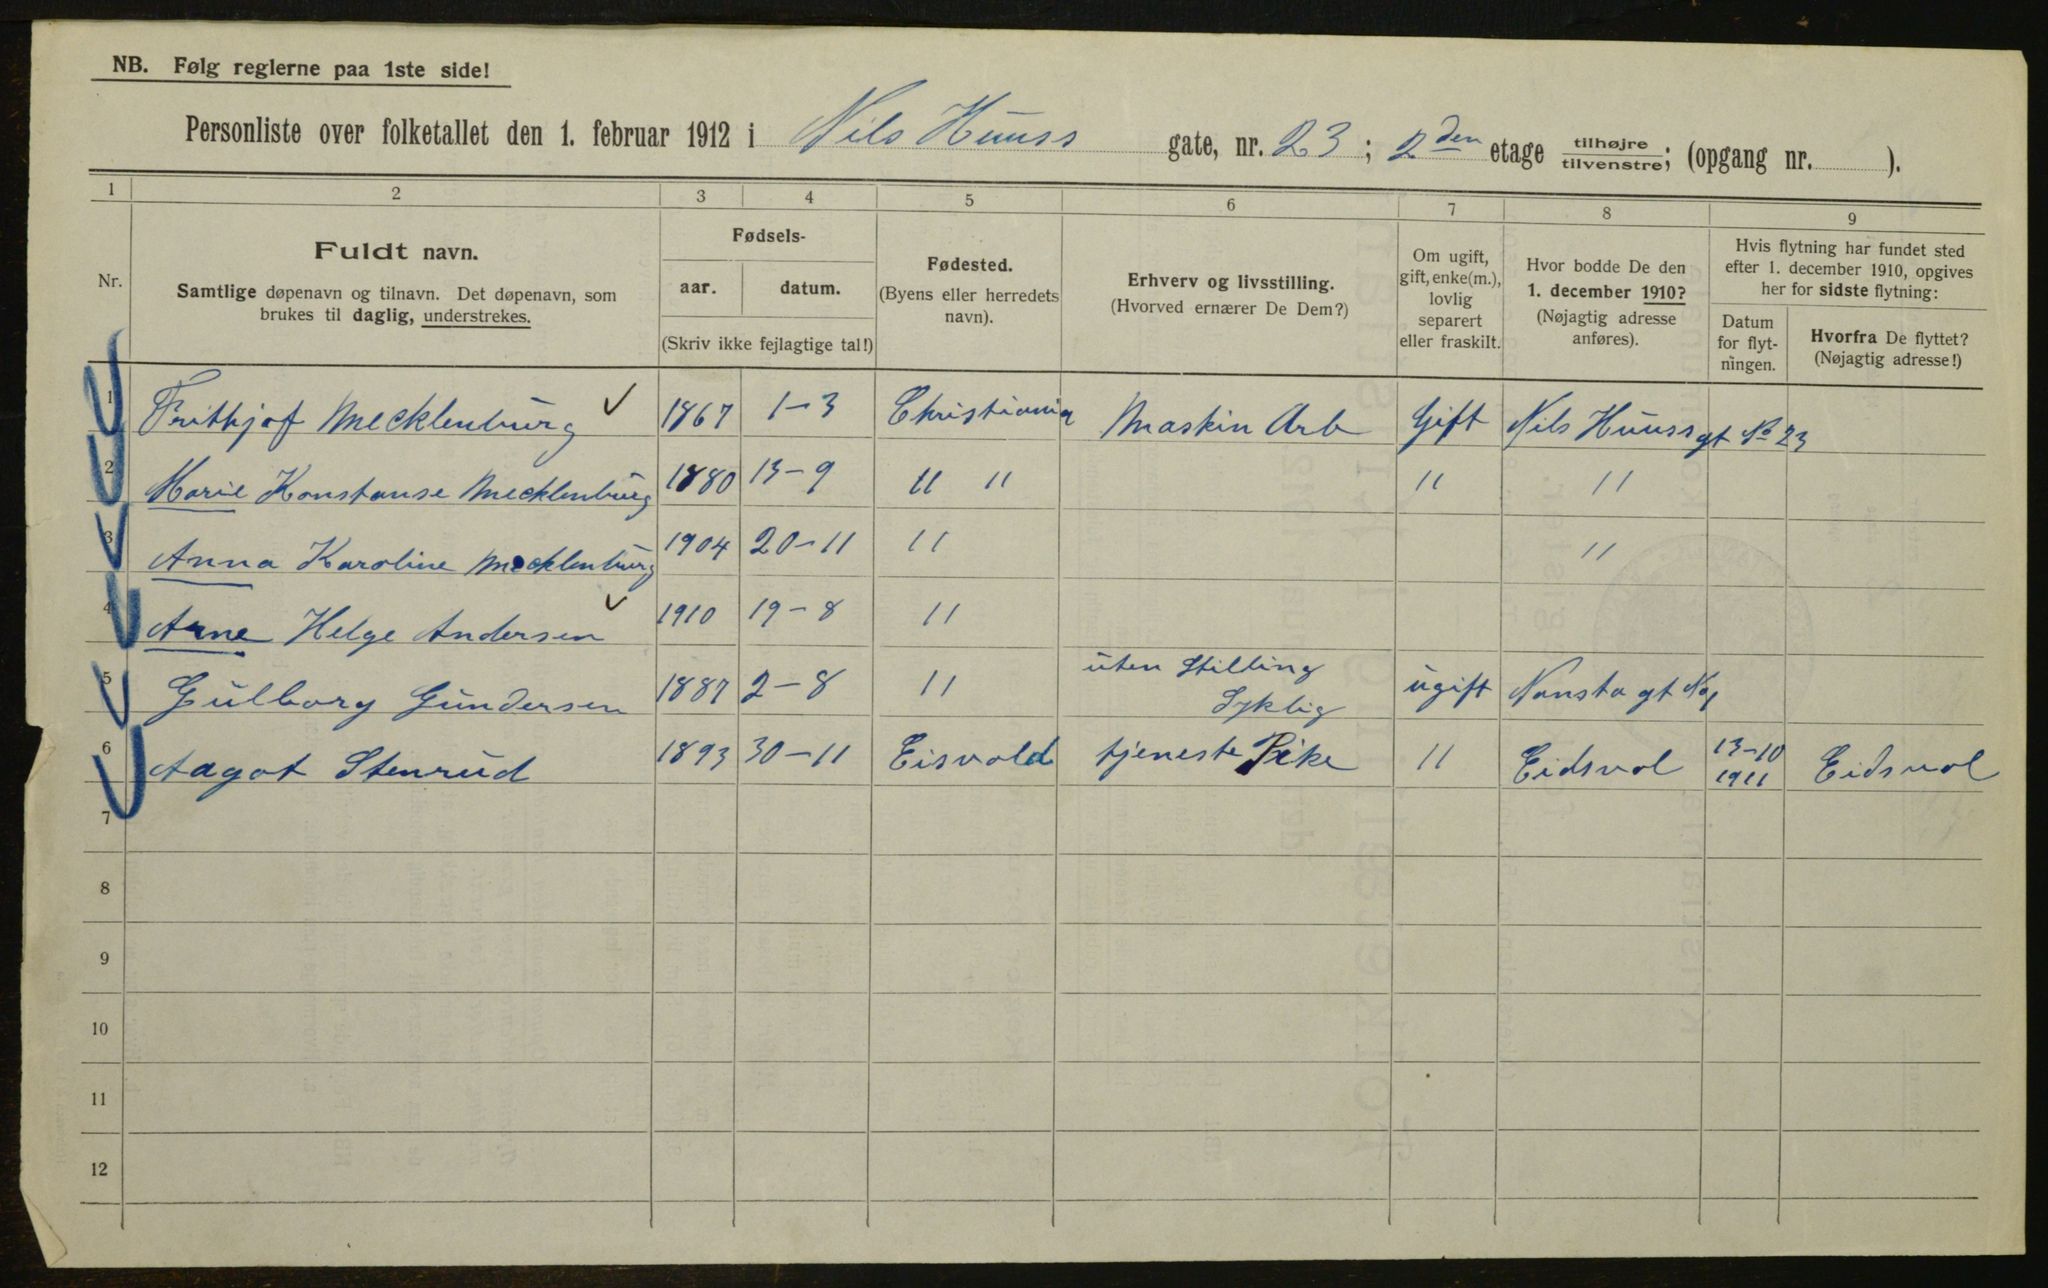 NB. Følg reglerne paa 1ste side!
Personliste over folketallet den 1. februar 1912 i Nils Huuss gate, nr. 23 ; 2den etage tilhøjre tilvenstre; (opgang nr. ).
1 2 3 4 5 6 7 8 9
Nr.
Fuldt navn.
Samtlige døpenavn og tilnavn. Det døpenavn, som
brukes til daglig, understrekes.
Fødsels-
aar. datum.
(Skriv ikke fejlagtige tal!)
Fødested.
(Byens eller herredets
navn).
Erhverv og livsstilling.
(Hvorved ernærer De Dem?)
Om ugift,
gift, enke(m.),
lovlig
separert
eller fraskilt.
Hvor bodde De den
1. december 1910?
(Nøjagtig adresse
anføres).
Hvis flytning har fundet sted
efter 1. december 1910, opgives
her for sidste flytning:
Datum
for flyt-
ningen.
Hvorfra De flyttet?
(Nøjagtig adresse!)
1 Frithjof Mecklenburg 1867 1-3 Christiania Maskin Arb Gift Nils Huuss gt No 23
2 Marie Konstanse Mecklenburg 1880 13-9 " " " "
3 Anna Karoline Mecklenburg 1904 20-11 " "
4 Arne Helge Andersen 1910 19-8 "
5 Gulborg Gundersen 1887 2-8 " uten Stilling ugift gt No
Syklig
6 Aagot Stenrud 1893 30-11 Eisvold tjeneste Pike " Eidsvol 13-10 1911 Eidsvol
7
8
9
10
11
12